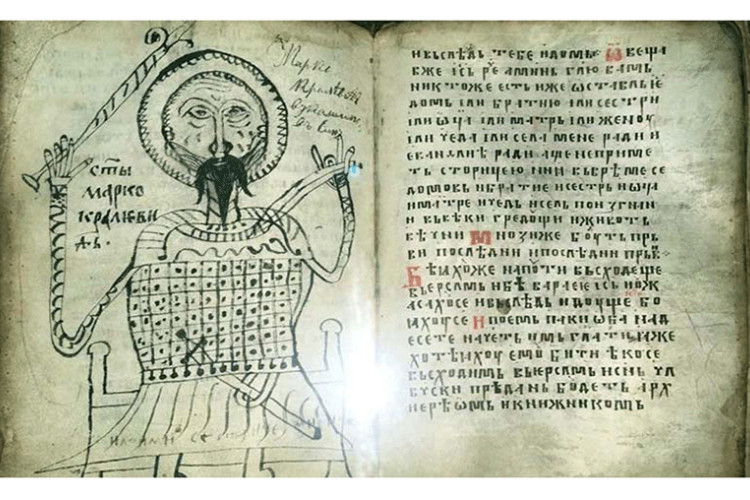 Марко
с҃ты
марко
кралеви
ћь.
и вьслѣдь тебе идомь Ѿвеща
вже і҃сь ре аминь гл҃ю вамь
никтоже есть иже ѡставль е
домь или братию или сестри
или ѡц҃а или матрь или женоу
или чеда или села мене ради и
еваньлиѣ ради аще не приме
ть сторицею н҃ни вь врѣме се
домовь и братие и сестрь и ѡца
и матре и чедь и сель по изгнан
и вь вѣки гредоущи и животь
вѣчни Мнози же боуть прь
ви послѣдни и послѣдни
Бѣхоу же на поути вьсходеще
вь ерс҃мь и бѣ вараѥ іс҃ь и оуж
асахоу се и вьслѣдь идоуще бо
ꙗхоу се И поемь паки ѡба над
есете начеть имь гл҃ати ꙗже
хотѣхоу емоу бити ѣко се
вьсходимь вь ерс҃мь и сн҃ь чл
вьски прѣдань боудеть арх
иерѣѡмь и книжникомь